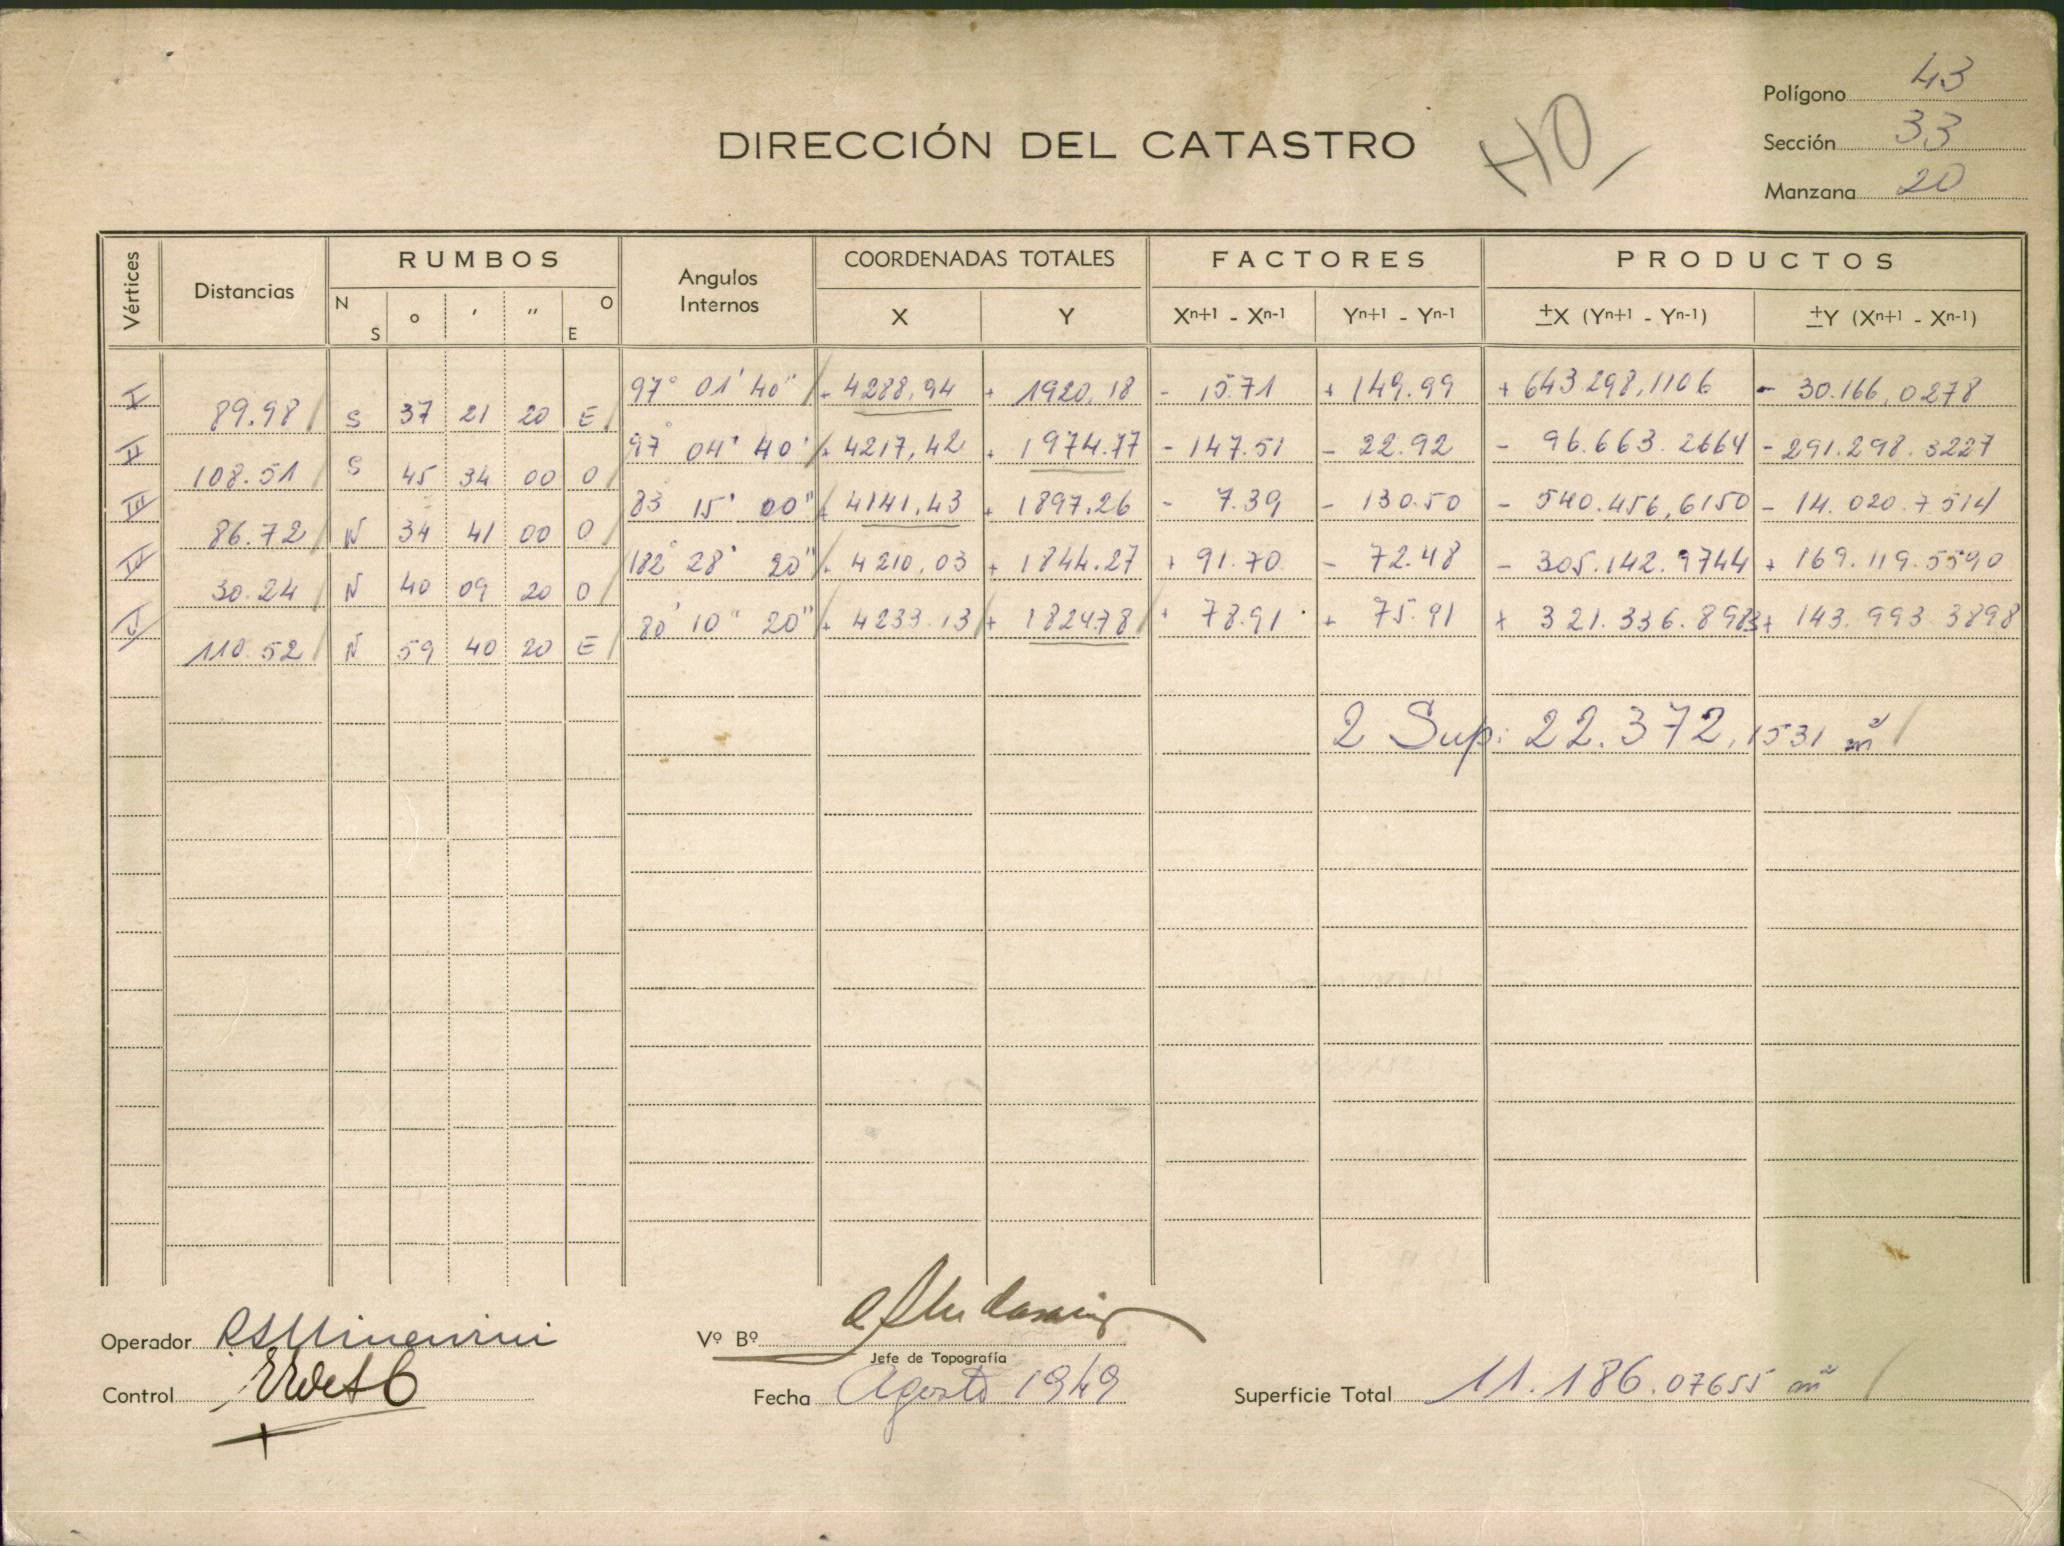 Polígono 43
DIRECCIÓN DEL CATASTRO
Sección 33
Manzana 20
Vértices Distancias RUMBOS Angulos Internos COORDENADAS TOTALES FACTORES PRODUCTOS
N S ° ′ ″ O E X Y Xⁿ⁺¹ - Xⁿ⁻¹ Yⁿ⁺¹ - Yⁿ⁻¹ ±X (Yⁿ⁺¹ - Yⁿ⁻¹) ±Y (Xⁿ⁺¹ - Xⁿ⁻¹)
I 97° 01' 40" + 4288,94 + 1920,18 - 15.71 + 149.99 + 643.298,1106 - 30.166,0278
89.98 S 37 21 20 E
II 97° 04' 40' + 4217,42 + 1974.77 - 147.51 - 22.92 - 96.663.2664 - 291.298.3227
108.51 S 45 34 00 O
III 83 15' 00" + 4141,43 + 1897.26 - 7.39 - 130.50 - 540.456,6150 - 14.020.7514
86.72 N 34 41 00 O
IV 182° 28' 20" + 4210,03 + 1844.27 + 91.70 - 72.48 - 305.142.9744 + 169.119.5590
30.24 N 40 09 20 O
V 80' 10" 20" + 4233.13 + 1824.78 + 78.91 + 75.91 + 321.336.8983 + 143.993.3898
110.52 N 59 40 20 E
2 Sup: 22.372,1531 m²
Operador
Vº Bº
Jefe de Topografía
Control
Fecha Agosto 1949
Superficie Total 11.186.07655 m²